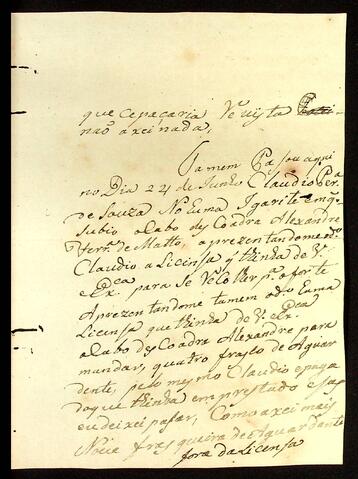 que cepaçaria Revista
não axei nada,
Tamem Paçou aqui
no Dia 24 de Junho Claudio Pra
de Souza No Euma Igarite em q.
Subio o Cabo de Coadra Alexandre
Ferr. de Mattos, aprezentandome o d.
Claudio a Licensa q tinha de V.
Ex.cia para se Recolher p.a o forte
Aprezentandome tamem o d. Euma
Licensa que tinha de V. Ex.cia
o Cabo de Coadra Alexandre para
mandar, quatro frascos de Aguar
dente, pelo mesmo Claudio e paga
do que tinha emprestado e
eu deixei pasar, Como axei mais
Nove frasqueira de Aguardente
fora da Licensa